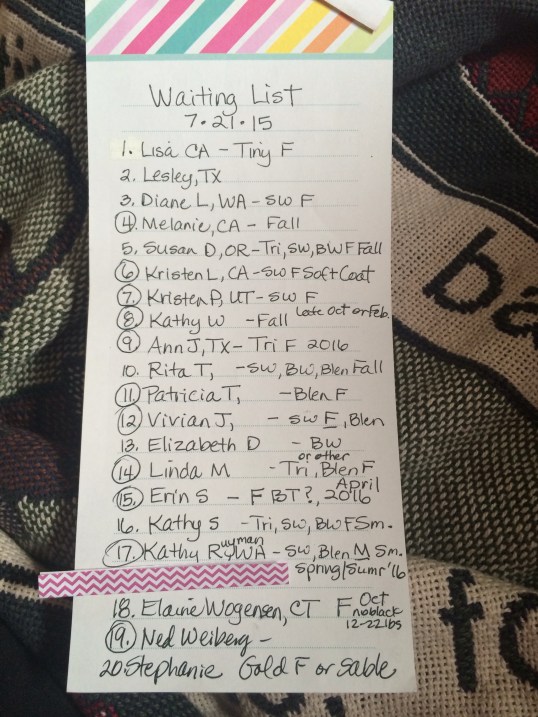 Waiting List
7.21.15
1. Lisa CA - Tiny F
2. Lesley, TX
3. Diane L, WA - SW F
4. Melanie, CA - Fall
5. Susan D, OR - Tri, SW, BW F Fall
6. Kristen L, CA - SW F Soft Coat
7. Kristen P, UT - SW F
8. Kathy W - Fall Late Oct or Feb.
9. Ann J, TX - Tri F 2016
10. Rita T, - SW, BW, Blen Fall
11. Patricia T, - Blen F
12. Vivian J, - SW F, Blen
13. Elizabeth D - BW
or other
14. Linda M - Tri, Blen F
15. Erin S - F BT?, April 2016
16. Kathy S - Tri, SW, BW F Sm.
17. Kathy Ruyman WA - SW, Blen M Sm.
Spring/Sumr '16
18. Elaine Wogensen, CT F Oct
no black
12-22 lbs
19. Ned Weiberg -
20. Stephanie Gold F or Sable
ba
fo